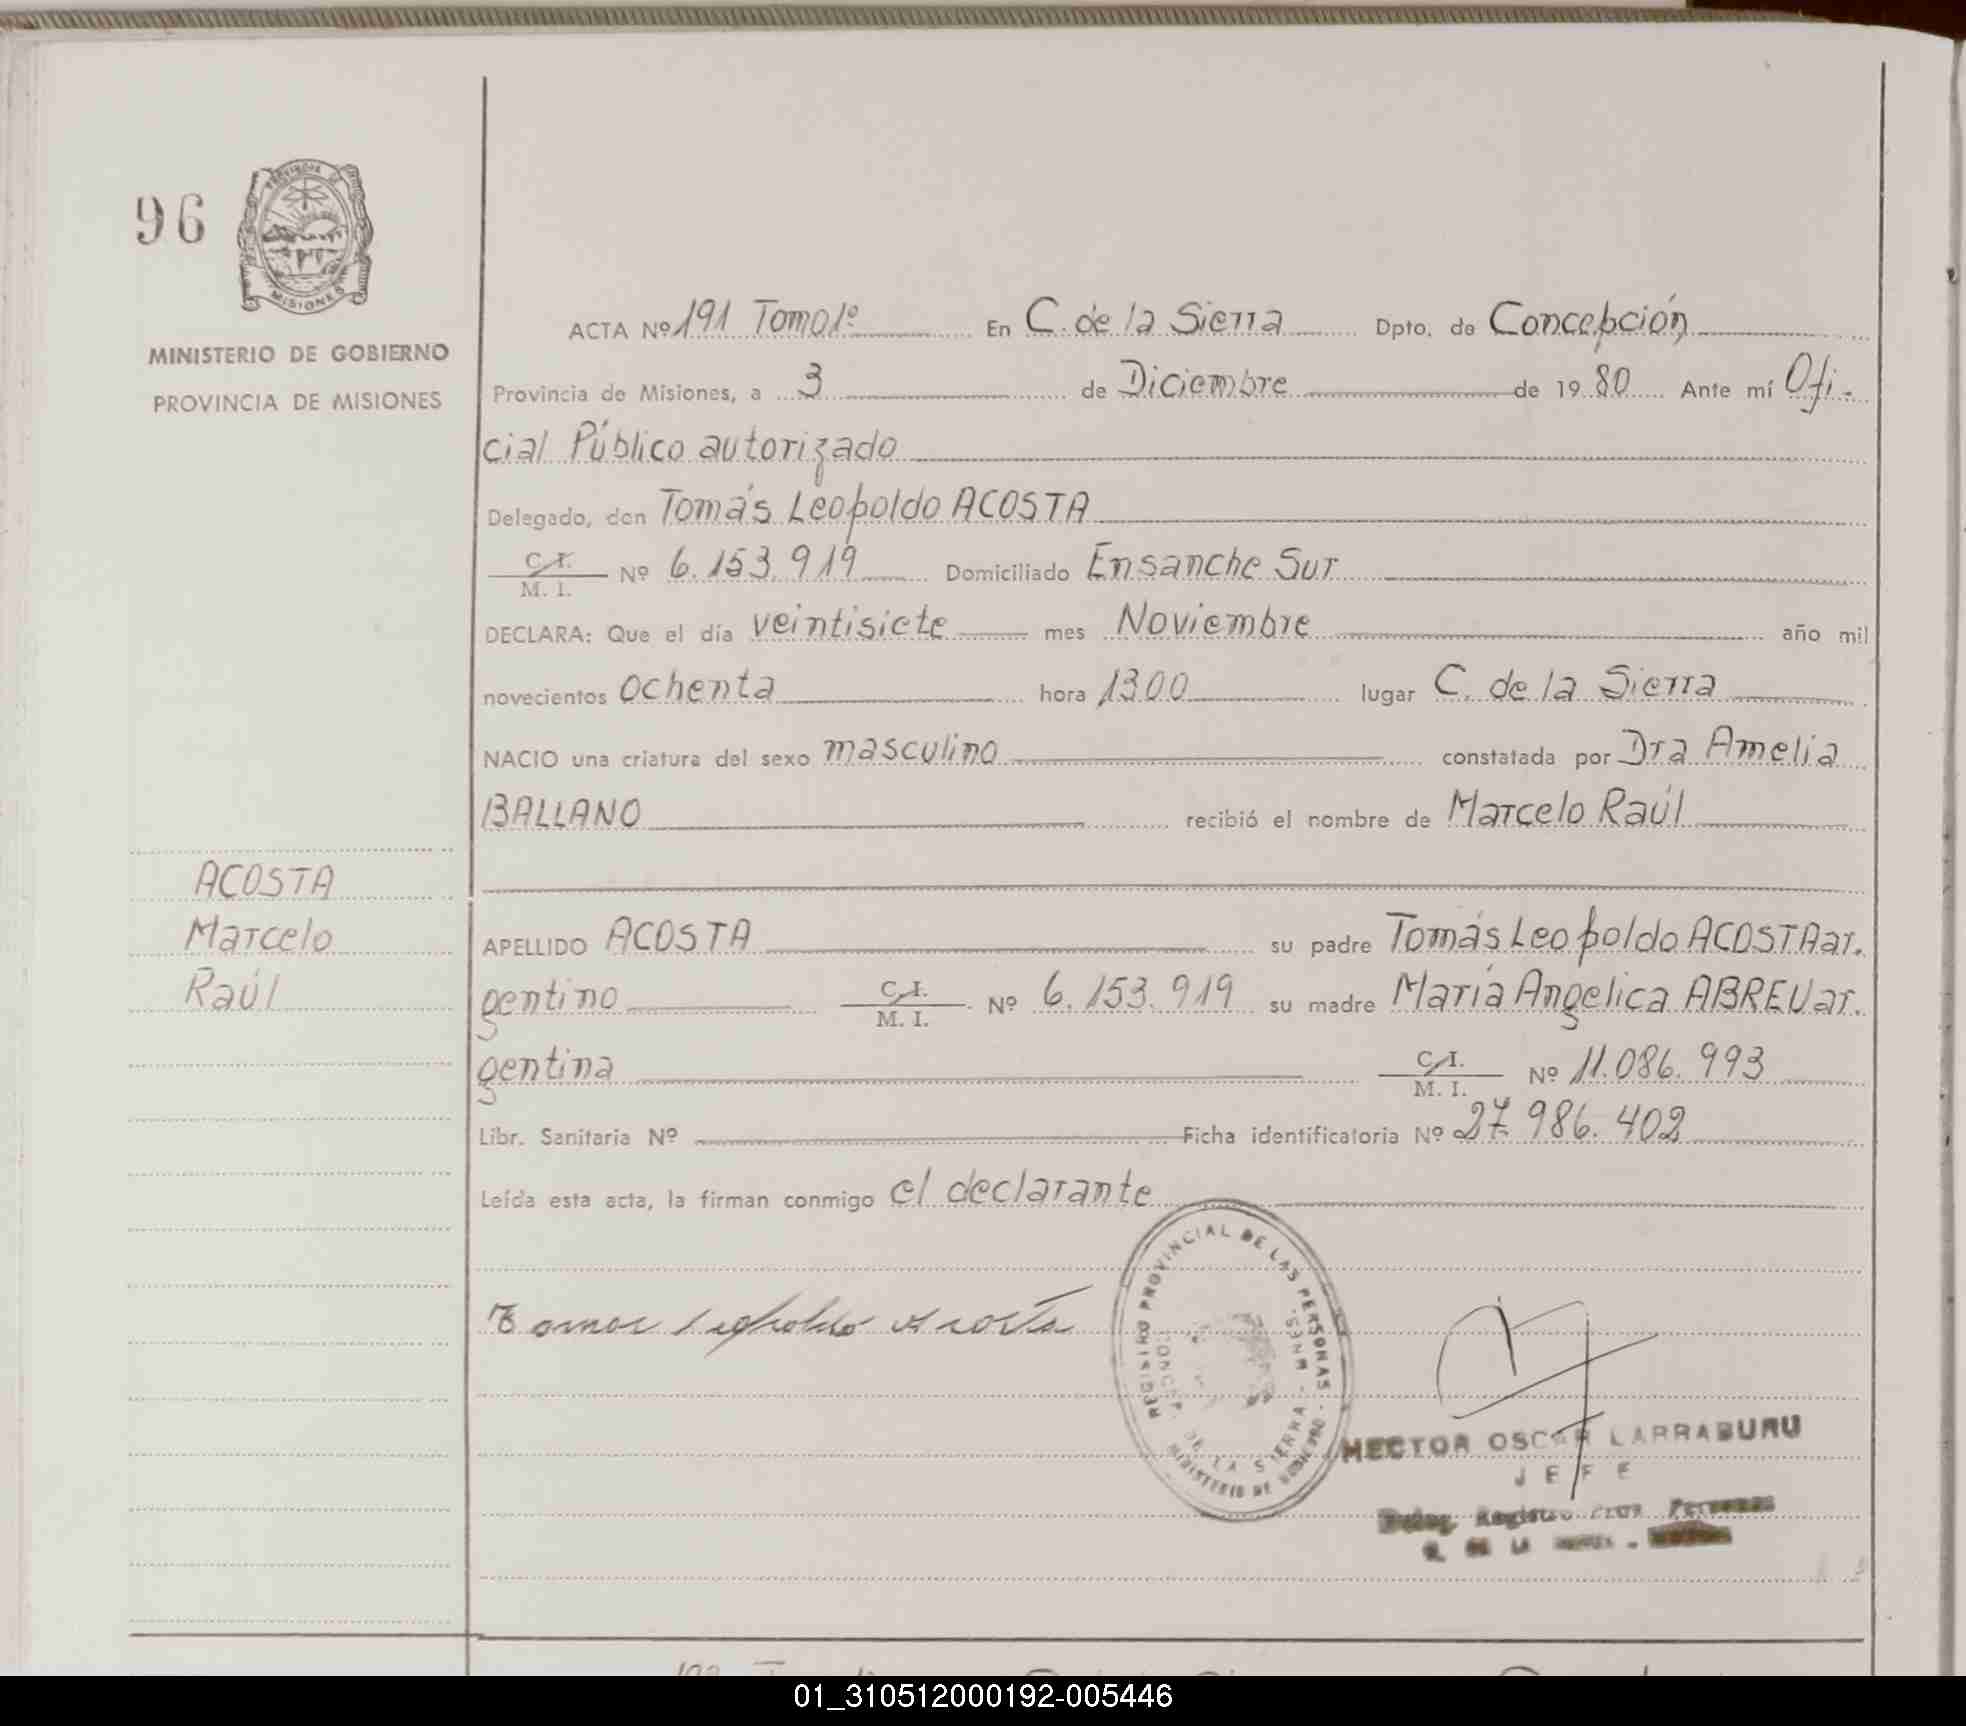 96
PROVINCIA DE
MISIONES
MINISTERIO DE GOBIERNO
PROVINCIA DE MISIONES
ACTA Nº 191 Tomo 1º En C. de la Sierra Dpto. de Concepción
Provincia de Misiones, a 3 de Diciembre de 1980 Ante mí Ofi-
cial Público autorizado
Delegado, don Tomás Leopoldo ACOSTA
C.I.
M. I. Nº 6.153.919 Domiciliado Ensanche Sur
DECLARA: Que el día veintisiete mes Noviembre año mil
novecientos ochenta hora 1300 lugar C. de la Sierra
NACIO una criatura del sexo masculino constatada por Dra Amelia
BALLANO recibió el nombre de Marcelo Raúl
ACOSTA
Marcelo
Raúl
APELLIDO ACOSTA su padre Tomás Leopoldo ACOSTA ar.
gentino C.I. M. I. Nº 6.153.919 su madre María Angelica ABREU ar.
gentina C.I. M. I. Nº 11.086.993
Libr. Sanitaria Nº Ficha identificatoria Nº 27.986.402
Leída esta acta, la firman conmigo el declarante
Tomas Leopoldo Acosta
REGISTRO PROVINCIAL DE LAS PERSONAS
CONCEP. DE LA SIERRA - MNES.
MINISTERIO DE GOBIERNO
HECTOR OSCAR LARRABURU
JEFE
Deleg. Registro Prov. Personas
C. DE LA SIERRA -
01_310512000192-005446